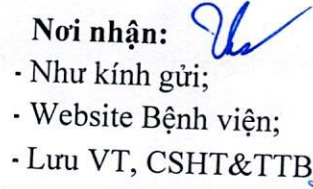 Nơi nhận:
- Như kính gửi;
- Website Bệnh viện;
- Lưu VT, CSHT&TTB